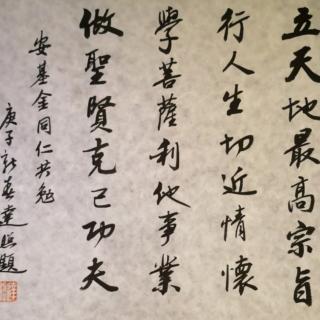 五天地最高宗旨
行人生切近情懷
學菩薩利他事業
做聖賢克己功夫
安基金同仁共勉
庚子新春 題